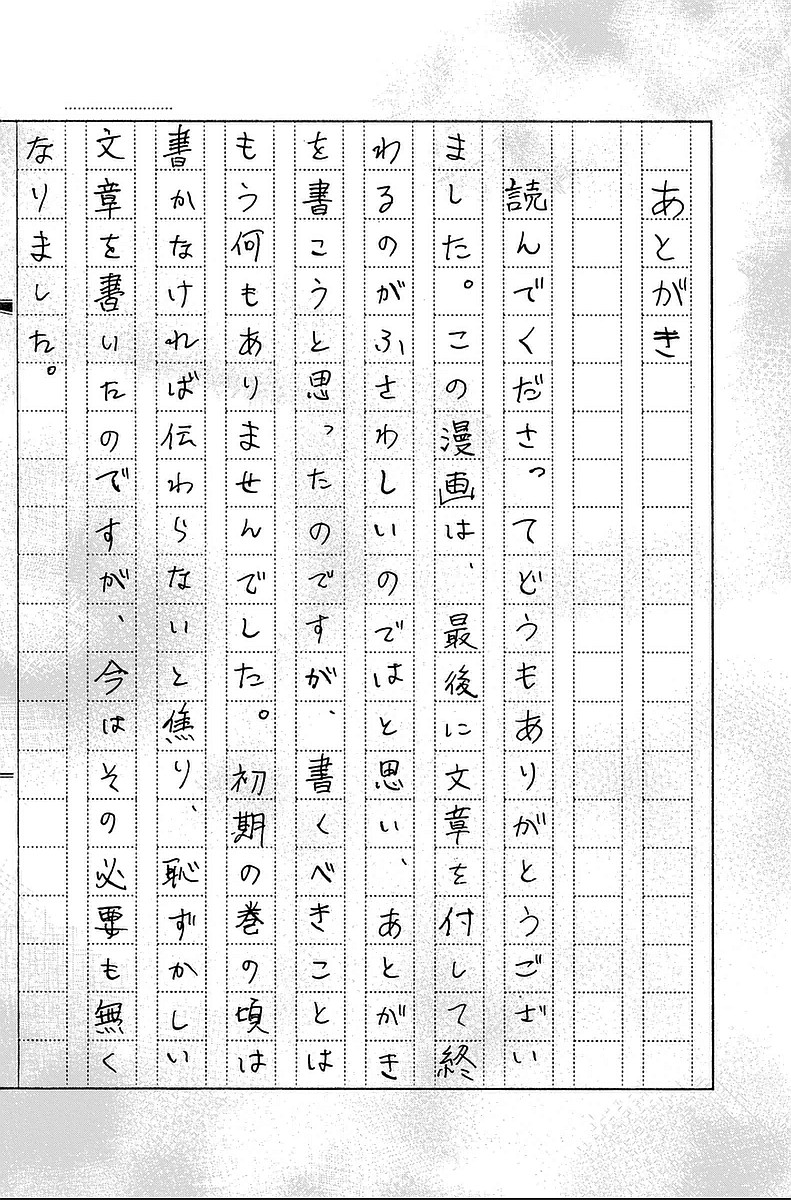 あとがき
読んでくださってどうもありがとうござい
ました。この漫画は、最後に文章を付して終
わるのがふさわしいのではと思い、あとがき
を書こうと思ったのですが、書くべきことは
もう何もありませんでした。初期の巻の頃は
書かなければ伝わらないと焦り、恥ずかしい
文章を書いたのですが、今はその必要も無く
なりました。